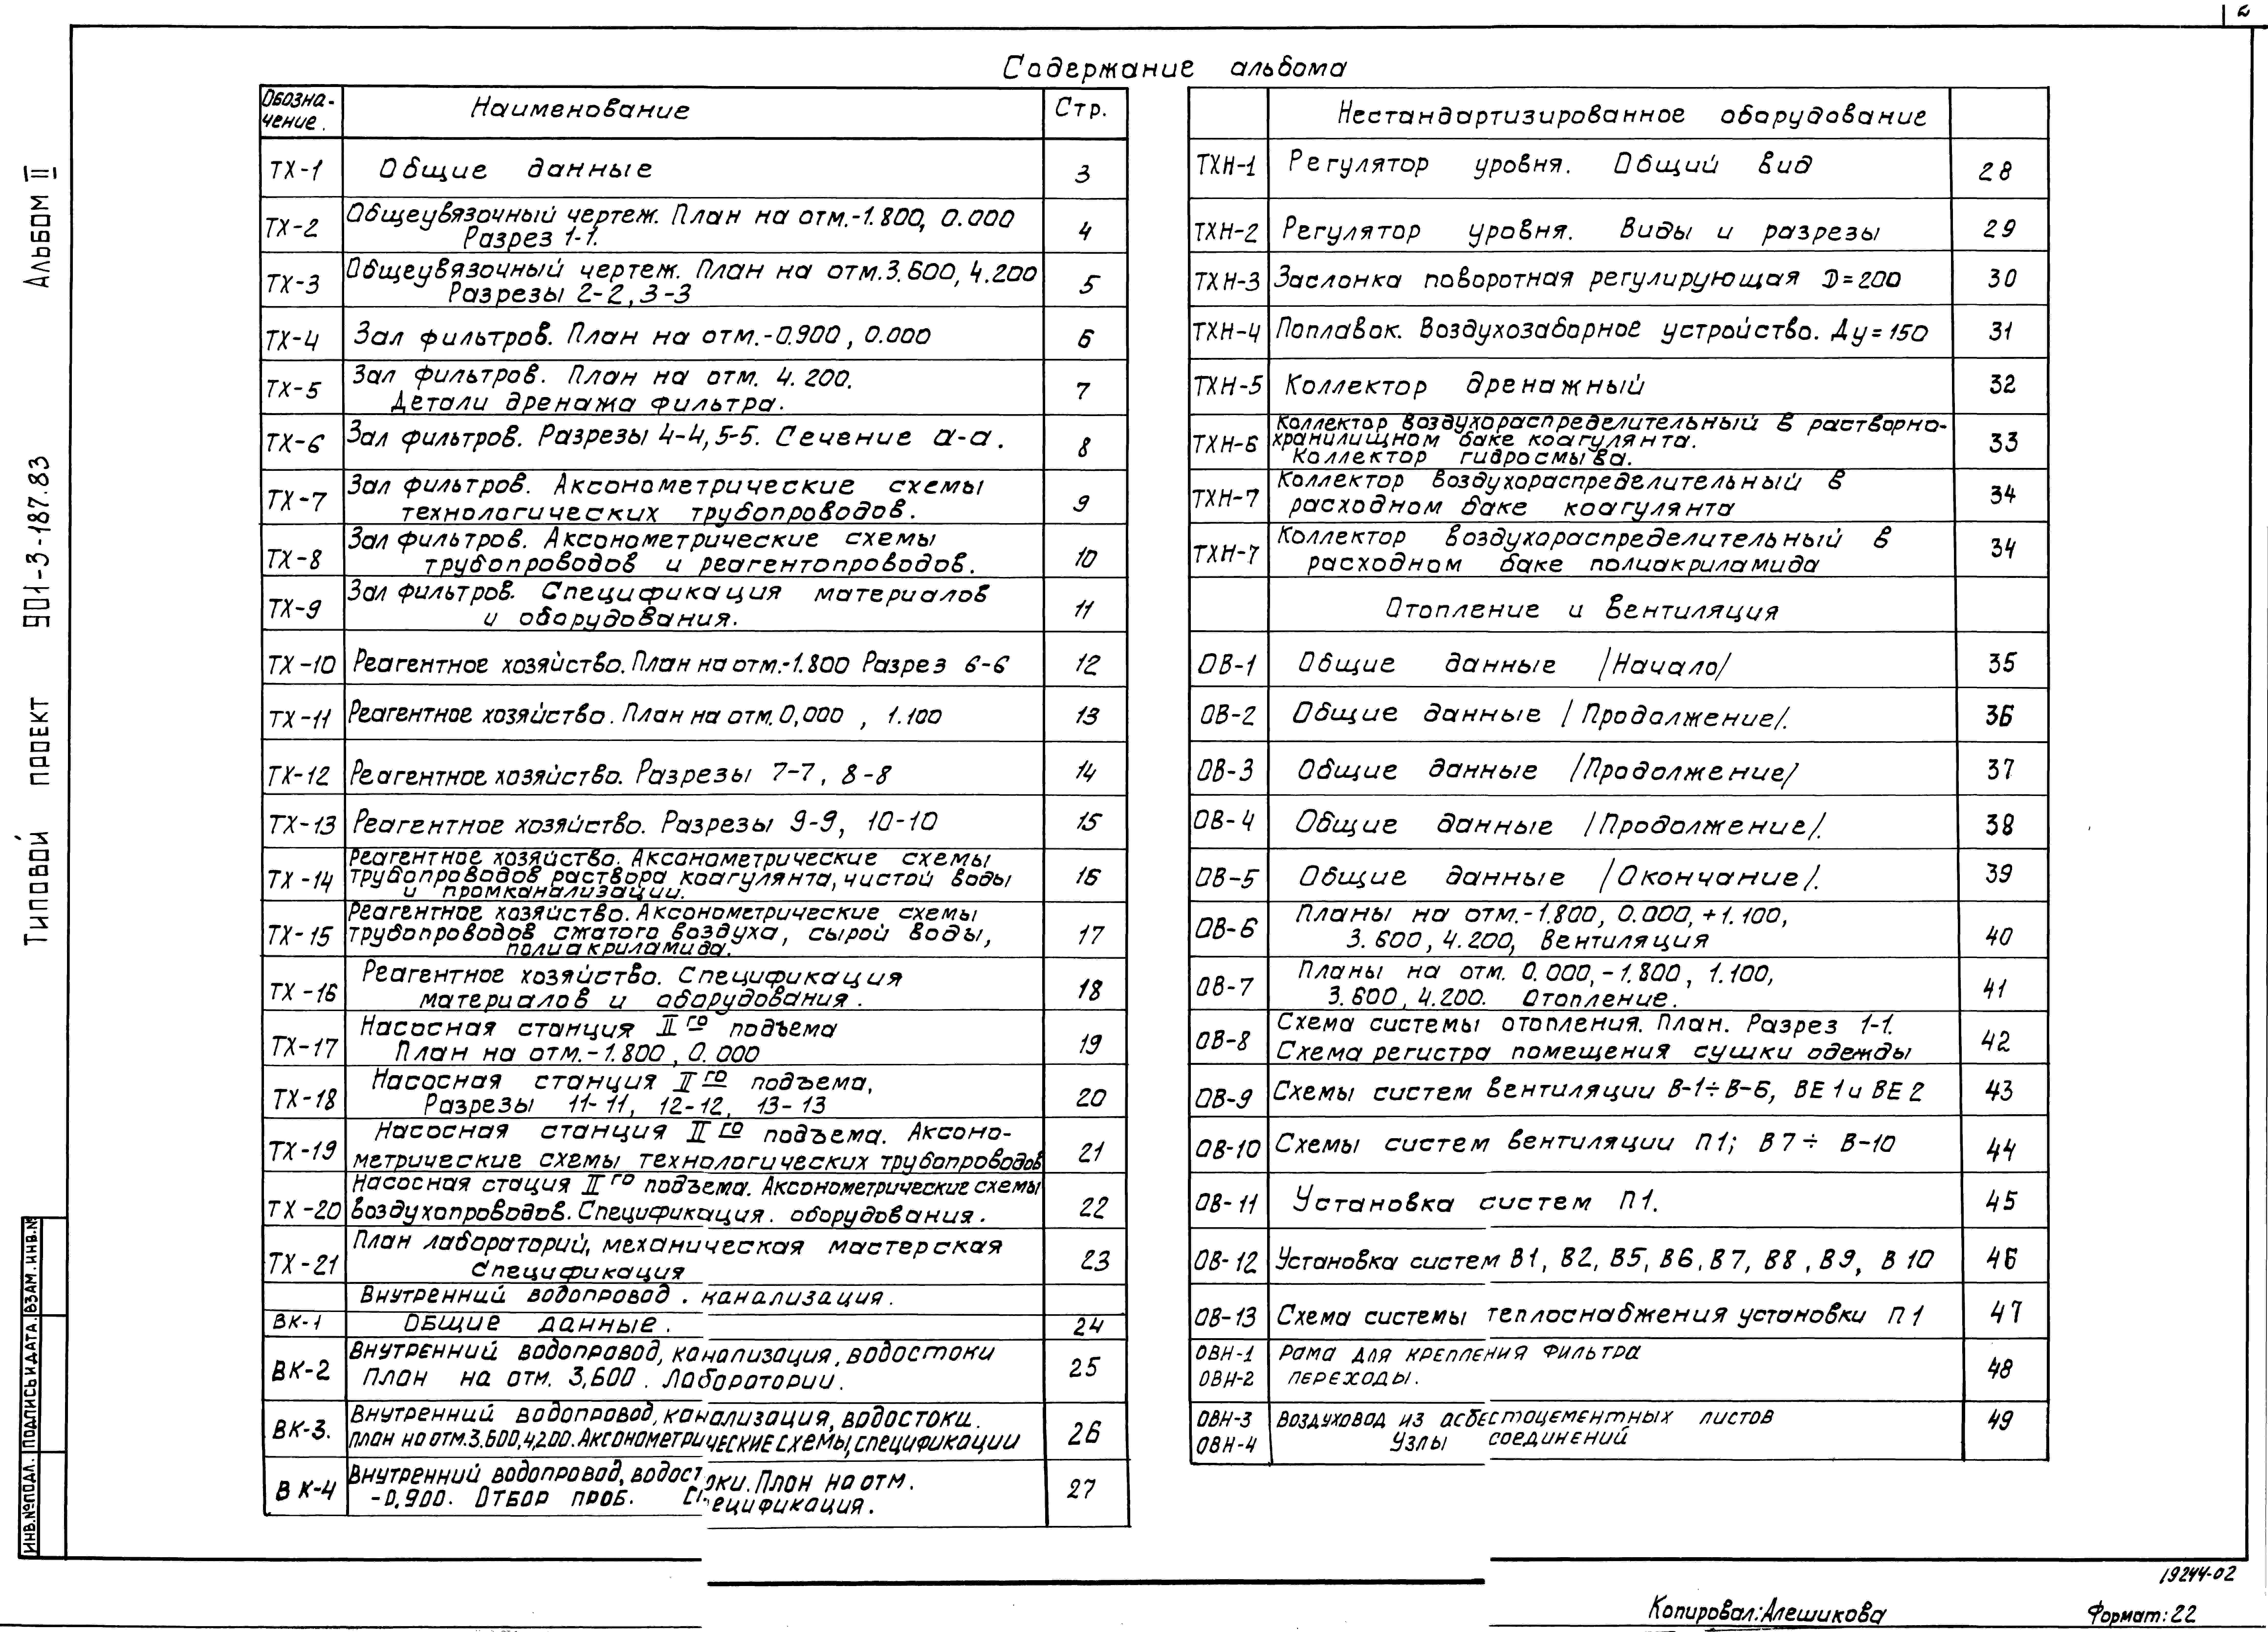 2
Содержание альбома
Обозна-
чение.
Наименование
Стр.
ТХ-1
Общие данные
3
ТХ-2
Общеувязочный чертеж. План на отм.-1.800, 0.000
Разрез 1-1.
4
ТХ-3
Общеувязочный чертеж. План на отм.3.600, 4.200
Разрезы 2-2, 3-3
5
ТХ-4
Зал фильтров. План на отм.-0.900, 0.000
6
ТХ-5
Зал фильтров. План на отм. 4.200.
Детали дренажа фильтра.
7
ТХ-6
Зал фильтров. Разрезы 4-4, 5-5. Сечение а-а.
8
ТХ-7
Зал фильтров. Аксонометрические схемы
технологических трубопроводов.
9
ТХ-8
Зал фильтров. Аксонометрические схемы
трубопроводов и реагентопроводов.
10
ТХ-9
Зал фильтров. Спецификация материалов
и оборудования.
11
ТХ-10
Реагентное хозяйство. План на отм.-1.800 Разрез 6-6
12
ТХ-11
Реагентное хозяйство. План на отм. 0,000 , 1.100
13
ТХ-12
Реагентное хозяйство. Разрезы 7-7, 8-8
14
ТХ-13
Реагентное хозяйство. Разрезы 9-9, 10-10
15
ТХ-14
Реагентное хозяйство. Аксонометрические схемы
трубопроводов раствора коагулянта, чистой воды
и промканализации.
16
ТХ-15
Реагентное хозяйство. Аксонометрические схемы
трубопроводов сжатого воздуха, сырой воды,
полиакриламида.
17
ТХ-16
Реагентное хозяйство. Спецификация
материалов и оборудования.
18
ТХ-17
Насосная станция II го подъема
План на отм.-1.800, 0.000
19
ТХ-18
Насосная станция II го подъема,
Разрезы 11-11, 12-12, 13-13
20
ТХ-19
Насосная станция II го подъема. Аксоно-
метрические схемы технологических трубопроводов
21
ТХ-20
Насосная стация II го подъема. Аксонометрические схемы
воздухопроводов. Спецификация. оборудования.
22
ТХ-21
План лабораторий, механическая мастерская
Спецификация
23
Внутренний водопровод. канализация.
ВК-1
Общие данные.
24
ВК-2
Внутренний водопровод, канализация, водостоки
План на отм. 3,600. Лаборатории.
25
ВК-3.
Внутренний водопровод, канализация, водостоки.
План на отм.3.600,4,200. Аксонометрические схемы, спецификации
26
ВК-4
Внутренний водопровод, водостоки. План на отм.
-0.900. Отбор проб. Спецификация.
27
Нестандартизированное оборудование
ТХН-1
Регулятор уровня. Общий вид
28
ТХН-2
Регулятор уровня. Виды и разрезы
29
ТХН-3
Заслонка поворотная регулирующая D=200
30
ТХН-4
Поплавок. Воздухозаборное устройство. Ду=150
31
ТХН-5
Коллектор дренажный
32
ТХН-6
Коллектор воздухораспределительный в растворно-
хранилищном баке коагулянта.
Коллектор гидросмыва.
33
ТХН-7
Коллектор воздухораспределительный в
расходном баке коагулянта
34
ТХН-7
Коллектор воздухораспределительный в
расходном баке полиакриламида
34
Отопление и вентиляция
ОВ-1
Общие данные /Начало/
35
ОВ-2
Общие данные /Продолжение/.
36
ОВ-3
Общие данные /Продолжение/
37
ОВ-4
Общие данные /Продолжение/.
38
ОВ-5
Общие данные /Окончание/.
39
ОВ-6
Планы на отм.-1.800, 0.000, +1.100,
3.600, 4.200, Вентиляция
40
ОВ-7
Планы на отм. 0.000, -1.800, 1.100,
3.600, 4.200. Отопление.
41
ОВ-8
Схема системы отопления. План. Разрез 1-1.
Схема регистра помещения сушки одежды
42
ОВ-9
Схемы систем вентиляции В-1÷В-6, ВЕ 1 и ВЕ 2
43
ОВ-10
Схемы систем вентиляции П1; В7÷ В-10
44
ОВ-11
Установка систем П1.
45
ОВ-12
Установка систем В1, В2, В5, В6, В7, В8, В9, В10
46
ОВ-13
Схема системы теплоснабжения установки П1
47
ОВН-1
Рама для крепления фильтра
ОВН-2
переходы.
48
ОВН-3
Воздуховод из асбестоцементных листов
ОВН-4
Узлы соединений
49
Типовой проект 901-3-187.83 Альбом II
ИНВ.№ПОДЛ. ПОДПИСЬ И ДАТА. ВЗАМ.ИНВ.№
19244-02
Копировал: Алешикова
Формат: 22